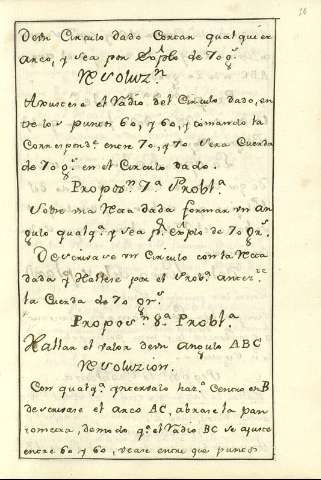 De un Circulo dado Cortar qualquier
arco, y sea por Exẽplo de 70 g.ˢ
Resoluz.ⁿ
Ajustese el Radio del Circulo dado, en
tre los puntos 60, y 60, y tomando la
Correspond.ᵉ entre 70, y 70 sera Cuerda
de 70 g.ˢ en el Circulo dado.
Propos.ⁿ 7.ª Probl.ª
Sobre una Recta dada formar un An
gulo qualq.ª y sea p.ʳ exẽplo de 70 gr.ˢ
Descrivase un Circulo con la Recta
dada y Hallese por el Prob.ª anter.ᵗᵉ
la Cuerda de 70 gr.ˢ
Propos.ⁿ 8.ª Probl.ª
Hallar el valor de un angulo ABC
Resoluzion.
Con qualq.ª intervalo haz.º Centro en B
descrivase el Arco AC, abrase la pan
tometra, demodo q.ᵉ el Radio BC se ajuste
entre 60 y 60, vease entre que puntos